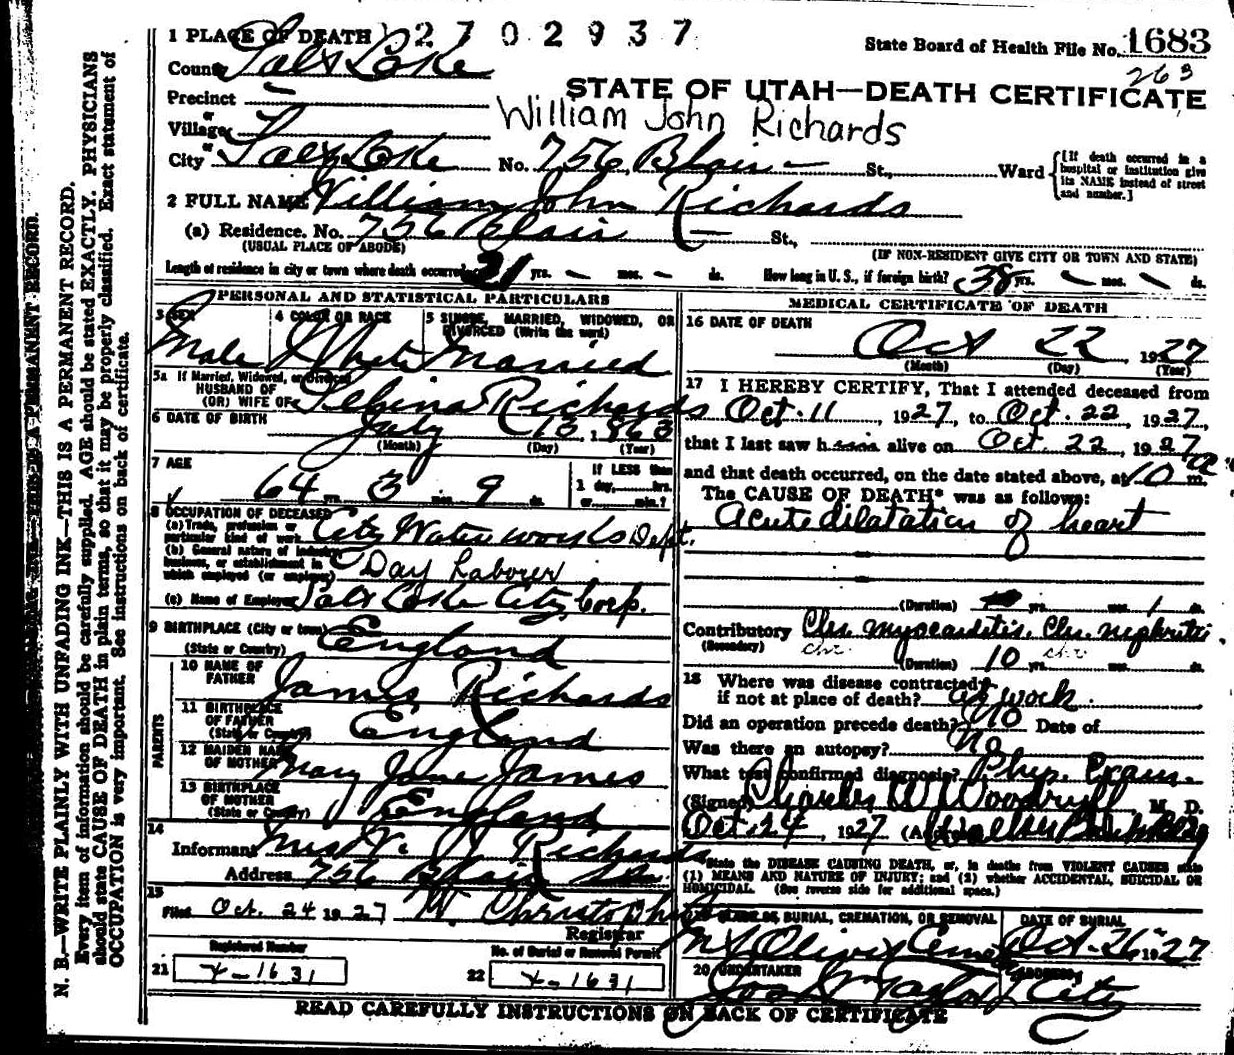 N. B.—WRITE PLAINLY WITH UNFADING INK—THIS IS A PERMANENT RECORD.
Every item of information should be carefully supplied. AGE should be stated EXACTLY. PHYSICIANS
should state CAUSE OF DEATH in plain terms, so that it may be properly classified. Exact statement of
OCCUPATION is very important. See instructions on back of certificate.
2702937
1 PLACE OF DEATH
State Board of Health File No. 1683
263
County Salt Lake
STATE OF UTAH—DEATH CERTIFICATE
Precinct
William John Richards
or
Village
or
City Salt Lake No. 756 Blair St., Ward
[If death occurred in a hospital or institution give its NAME instead of street and number.]
2 FULL NAME William John Richards
(a) Residence. No. 756 Blair St.,
(USUAL PLACE OF ABODE) (IF NON-RESIDENT GIVE CITY OR TOWN AND STATE)
Length of residence in city or town where death occurred 21 yrs. — mos. — ds. How long in U. S., if foreign birth? 38 yrs. — mos. — ds.
PERSONAL AND STATISTICAL PARTICULARS
3 SEX 4 COLOR OR RACE 5 SINGLE, MARRIED, WIDOWED, OR DIVORCED (Write the word)
Male White Married
5a If Married, Widowed, or Divorced
HUSBAND OF
(OR) WIFE OF Selina Richards
6 DATE OF BIRTH July 13, 1863
(Month) (Day) (Year)
7 AGE If LESS than
64 yrs. 3 mos. 9 ds. 1 day, hrs.
or min.?
8 OCCUPATION OF DECEASED
(a) Trade, profession or
particular kind of work City Waterworks Dept.
(b) General nature of industry
business, or establishment in
which employed (or employer) Day Laborer
(c) Name of Employer Salt Lake City Corp.
9 BIRTHPLACE (City or town)
(State or Country) England
PARENTS
10 NAME OF
FATHER James Richards
11 BIRTHPLACE
OF FATHER
(State or Country) England
12 MAIDEN NAME
OF MOTHER Mary Jane James
13 BIRTHPLACE
OF MOTHER
(State or Country) England
14
Informant Mrs W. J. Richards
Address 756 Blair St.
15
Filed Oct. 24 1927
Registrar
Registered Number No. of Burial or Removal Permit
21 x-1631 22 x-1631
MEDICAL CERTIFICATE OF DEATH
16 DATE OF DEATH
Oct 22, 1927
(Month) (Day) (Year)
17 I HEREBY CERTIFY, That I attended deceased from
Oct. 11, 1927, to Oct. 22, 1927,
that I last saw h alive on Oct. 22, 1927
and that death occurred, on the date stated above, at 10 a m.
The CAUSE OF DEATH* was as follows:
Acute dilatation of heart
(Duration) yrs. mos. 1 ds.
Contributory Chr. myocarditis. Chr. nephritis.
(Secondary) chr. (Duration) 10 yrs. chr. mos. ds.
18 Where was disease contracted
if not at place of death? at work.
Did an operation precede death? No Date of
Was there an autopsy? No
What test confirmed diagnosis? Phys. Exam.
(Signed) Charles W Woodruff, M. D.
Oct. 24, 1927 (Address)
*State the DISEASE CAUSING DEATH, or, in deaths from VIOLENT CAUSES state
(1) MEANS AND NATURE OF INJURY; and (2) whether ACCIDENTAL, SUICIDAL OR
HOMICIDAL. (See reverse side for additional space.)
19 PLACE OF BURIAL, CREMATION, OR REMOVAL DATE OF BURIAL
Mt Olivet Cem Oct. 26 1927
20 UNDERTAKER ADDRESS
Jos Wm Taylor City
READ CAREFULLY INSTRUCTIONS ON BACK OF CERTIFICATE